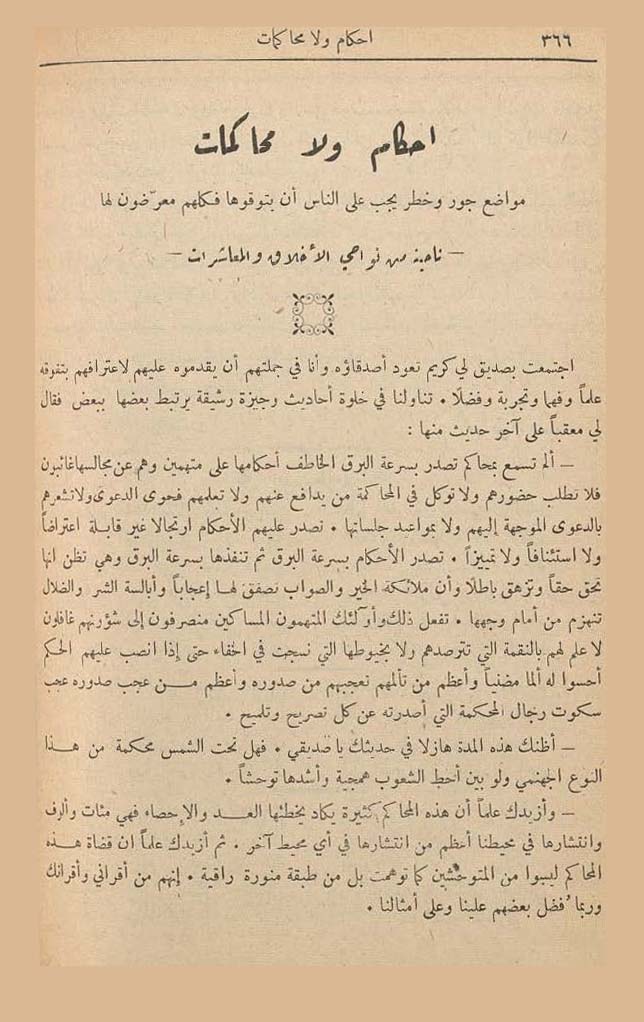 ٣٦٦
احكام ولا محاكمات
احكام ولا محاكمات
مواضع جور وخطر يجب على الناس أن يتوقوها فكلهم معرّضون لها
— ناحية من نواحي الأخلاق والمعاشرات —
اجتمعت بصديق لي كريم تعود أصدقاؤه وأنا في جملتهم أن يقدموه عليهم لاعترافهم بتفوقه
علماً وفهما وتجربة وفضلا . تناولنا في خلوة أحاديث وجيزة رشيقة يرتبط بعضها ببعض فقال
لي معقباً على آخر حديث منها :
— ألم تسمع بمحاكم تصدر بسرعة البرق الخاطف أحكامها على متهمين وهم عن مجالسها غائبون
فلا تطلب حضورهم ولا توكل في المحاكمة من يدافع عنهم ولا تعلمهم فحوى الدعوى ولا تشعرهم
بالدعوى الموجهة إليهم ولا بمواعيد جلساتها . تصدر عليهم الأحكام ارتجالا غير قابلة اعتراضاً
ولا استئنافاً ولا تمييزاً . تصدر الأحكام بسرعة البرق ثم تنفذها بسرعة البرق وهي تظن انها
تحق حقاً وتزهق باطلا وأن ملائكة الخير والصواب تصفق لها إعجاباً وأبالسة الشر والضلال
تنهزم من أمام وجهها . تفعل ذلك وأولئك المتهمون المساكين منصرفون إلى شؤونهم غافلون
لا علم لهم بالنقمة التي تترصدهم ولا بخيوطها التي نسجت في الخفاء حتى إذا انصب عليهم الحكم
أحسوا له ألما مضنياً وأعظم من تألمهم تعجبهم من صدوره وأعظم من عجب صدوره عجب
سكوت رجال المحكمة التي أصدرته عن كل تصريح وتلميح .
— أظنك هذه المدة هازلا في حديثك يا صديقي . فهل تحت الشمس محكمة من هذا
النوع الجهنمي ولو بين أحط الشعوب همجية وأشدها توحشاً .
— وأزيدك علماً أن هذه المحاكم كثيرة يكاد يخطئها العد والإحصاء فهي مئات وألوف
وانتشارها في محيطنا أعظم من انتشارها في أي محيط آخر . ثم أزيدك علماً ان قضاة هذه
المحاكم ليسوا من المتوحشين كما توهمت بل من طبقة منورة راقية . إنهم من أقراني وأقرانك
وربما فضل بعضهم علينا وعلى أمثالنا .